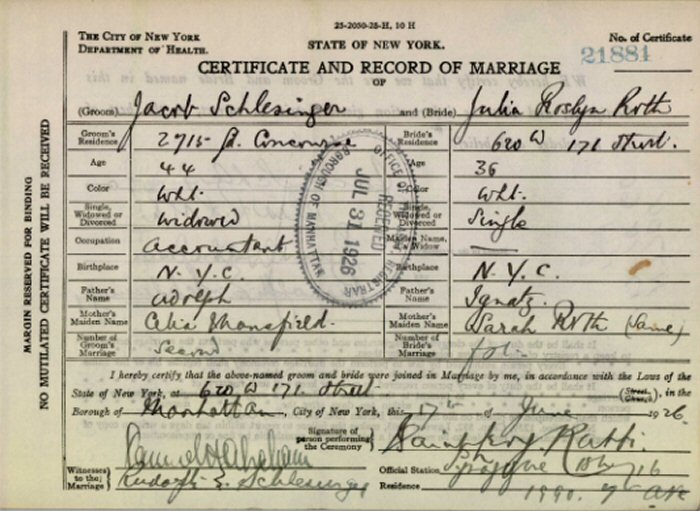 25-2050-25-H, 10 H
THE CITY OF NEW YORK
DEPARTMENT OF HEALTH.
STATE OF NEW YORK.
No. of Certificate
21881
CERTIFICATE AND RECORD OF MARRIAGE
OF
(Groom) Jacob Schlesinger and (Bride) Julia Roslyn Roth
Groom's Residence 2715 Gd. Concourse Bride's Residence 620 W 171 Street.
Age 44 Age 36
Color Wht. Color Wht.
Single, Widowed or Divorced Widowed Single, Widowed or Divorced Single
Occupation Accountant Maiden Name, if a Widow —
Birthplace N.Y.C. Birthplace N.Y.C.
Father's Name Adolph Father's Name Ignatz.
Mother's Maiden Name Celia Mansfield. Mother's Maiden Name Sarah Roth (Same)
Number of Groom's Marriage Second Number of Bride's Marriage
OFFICE OF REGISTRAR
RECEIVED
JUL 31 1926
BOROUGH OF MANHATTAN
I hereby certify that the above-named groom and bride were joined in Marriage by me, in accordance with the Laws of the
State of New York, at 620 W 171 Street (Street, Church), in the
Borough of Manhattan, City of New York, this 17th of June 1926
Signature of person performing the Ceremony Rabbi.
Samuel Abraham
Witnesses to the Marriage Rudolf S. Schlesinger
Official Station
Residence 1990. 7th Ave
MARGIN RESERVED FOR BINDING
NO MUTILATED CERTIFICATE WILL BE RECEIVED